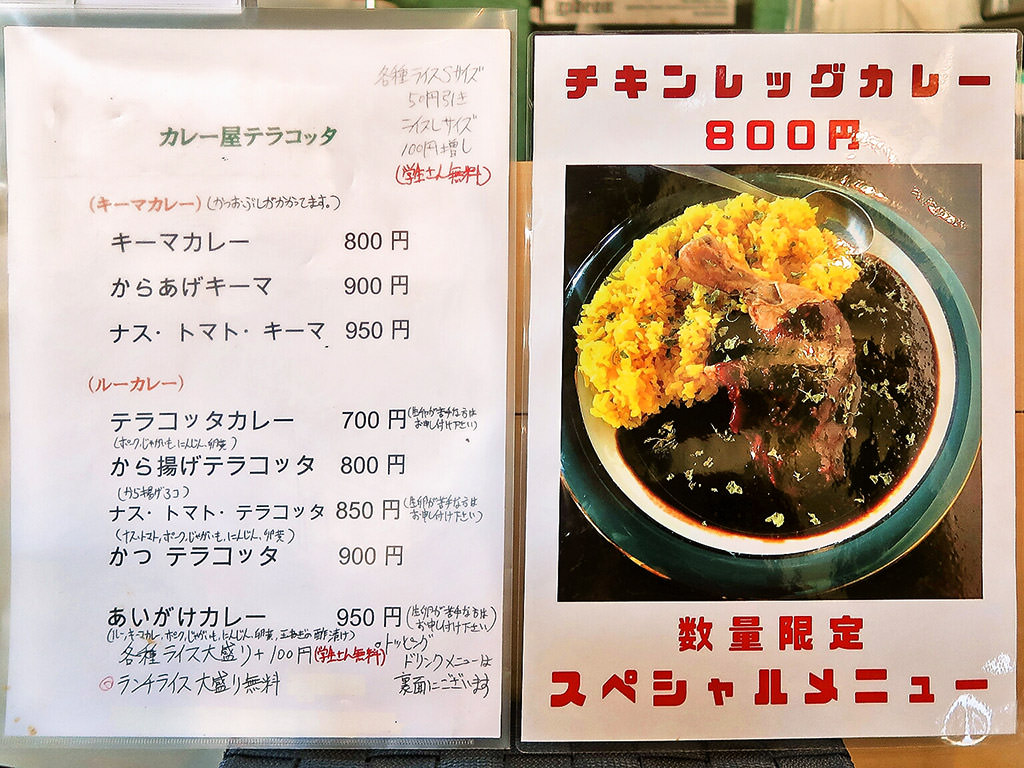 各種ライスSサイズ
50円引き
ライスLサイズ
100円増し
(学生さん無料)
カレー屋テラコッタ
(キーマカレー)(かつおぶしがかかってます。)
キーマカレー 800 円
からあげキーマ 900 円
ナス・トマト・キーマ 950 円
(ルーカレー)
テラコッタカレー 700 円(生卵が苦手な方はお申し付け下さい)
(ポーク,じゃがいも,にんじん,卵黄)
から揚げテラコッタ 800 円
(から揚げ3コ)
ナス・トマト・テラコッタ 850 円(生卵が苦手な方はお申し付け下さい)
(ナス,トマト,ポーク,じゃがいも,にんじん,卵黄)
かつ テラコッタ 900 円
あいがけカレー 950 円(生卵が苦手な方はお申し付け下さい)
(ルー,キーマカレー,ポーク,じゃがいも,にんじん,卵黄,玉ねぎの酢漬け)
各種ライス大盛り+100円(学生さん無料)
ランチライス大盛り無料
トッピング
ドリンクメニューは
裏面にございます
チキンレッグカレー
800円
数量限定
スペシャルメニュー